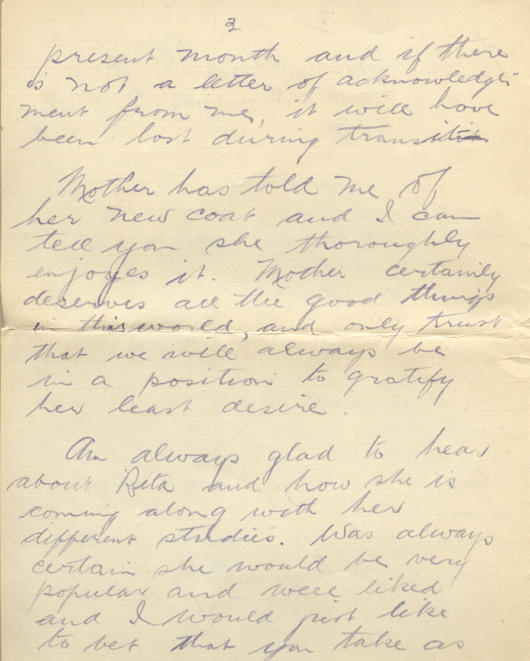 3
present month and if there
is not a letter of acknowledge-
ment from me, it will have
been lost during transit
Mother has told me of
her new coat and I can
tell you she thoroughly
enjoyes it. Mother certainly
deserves all the good things
in this world, and only trust
that we will always be
in a position to gratify
her least desire.
Am always glad to hear
about Rita and how she is
coming along with her
different studies. Was always
certain she would be very
popular and well liked
and I would just like
to bet that you take as